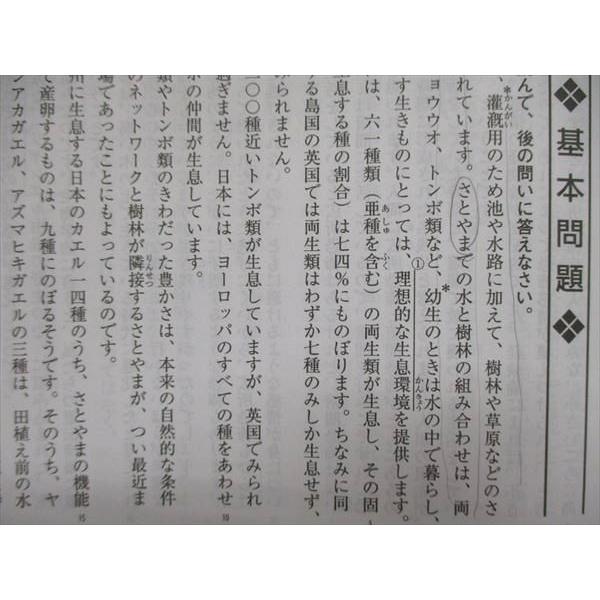 ❖ 基本問題 ❖
んで、後の問いに答えなさい。
、灌漑用のため池や水路に加えて、樹林や草原などのさ
れています。さとやまでの水と樹林の組み合わせは、両
ョウウオ、トンボ類など、幼生のときは水の中で暮らし、
す生きものにとっては、①理想的な生息環境を提供します。
は、六一種類（亜種を含む）の両生類が生息し、その固
息する種の割合）は七四％にものぼります。ちなみに同
る島国の英国では両生類はわずか七種のみしか生息せず、
みられません。
〇〇種近いトンボ類が生息していますが、英国でみられ
過ぎません。日本には、ヨーロッパのすべての種をあわせ
の仲間が生息しています。
類やトンボ類のきわだった豊かさは、本来の自然的な条件
のネットワークと樹林が隣接するさとやまが、つい最近ま
場であったことにもよっているのです。
州に生息する日本のカエル一四種のうち、さとやまの機能
て産卵するものは、九種にのぼるそうです。そのうち、ヤ
ンアカガエル、アズマヒキガエルの三種は、田植え前の水